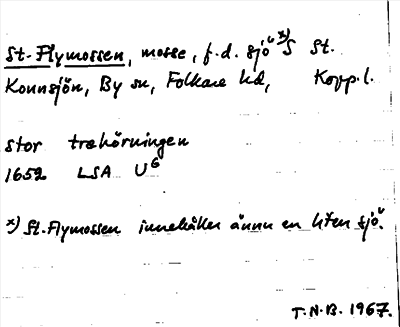 St-Flymossen, mosse, f.d. sjö x) S St.
Konnsjön, By sn, Folkare hd, Kopp.l.
stor trehörningen
1652 LSA U6
x) St-Flymossen innehåller ännu en liten sjö.
T.N.B. 1967.